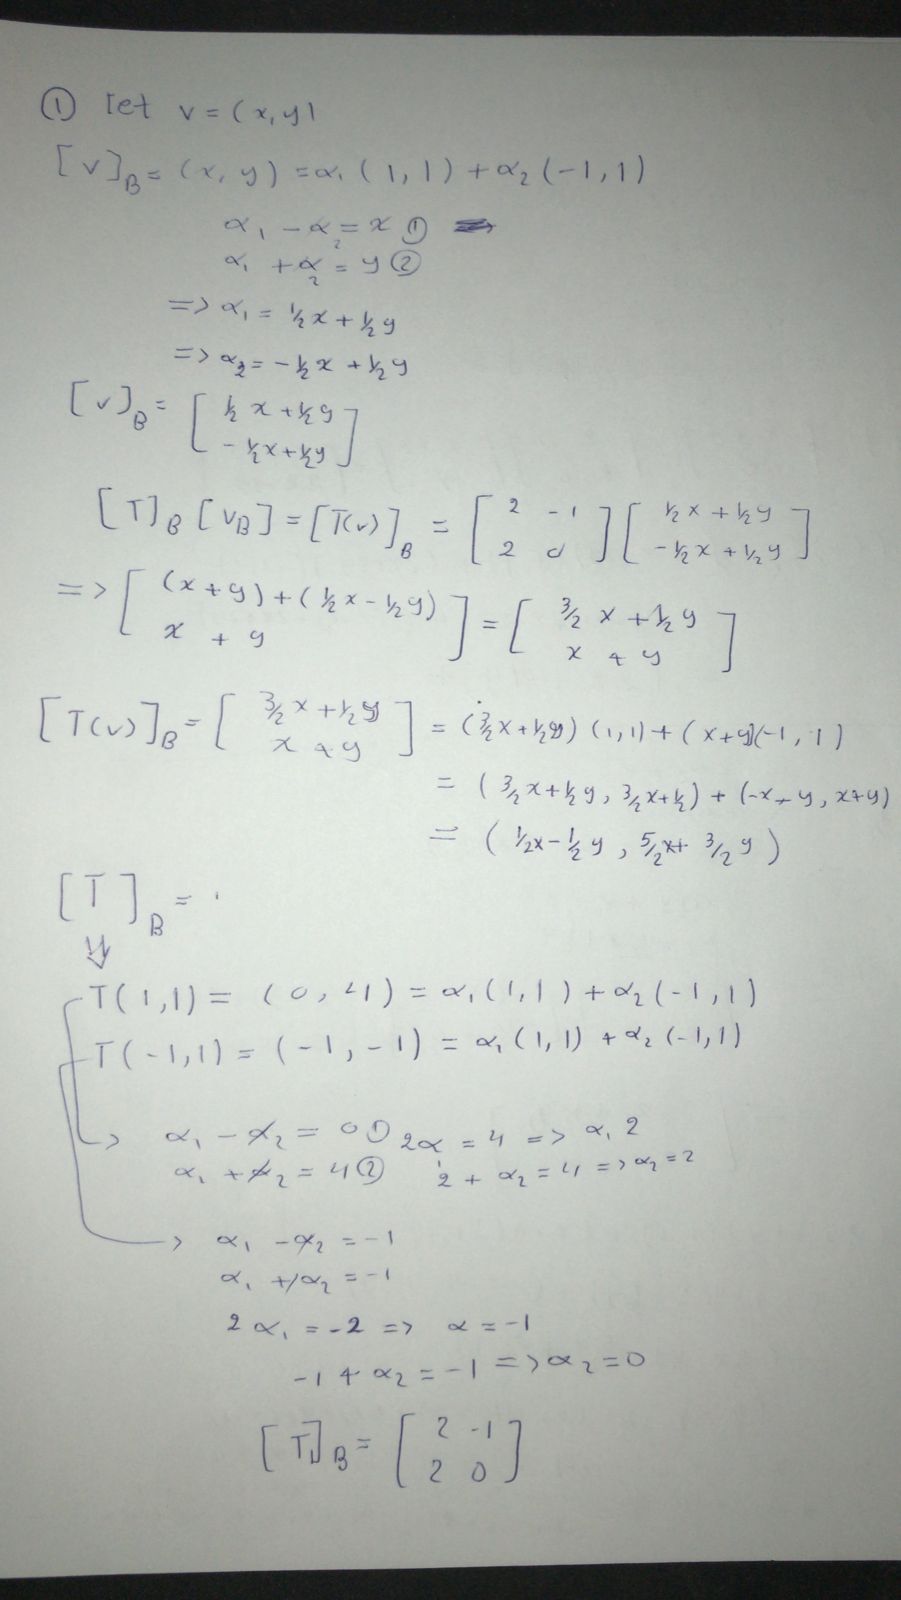 ① let v = (x, y)
[v]_B = (x, y) = α₁ (1, 1) + α₂ (-1, 1)
α₁ - α₂ = x ①
α₁ + α₂ = y ②
=> α₁ = ½x + ½y
=> α₂ = -½x + ½y
[v]_B = [ ½x + ½y
-½x + ½y ]
[T]_B [v_B] = [T(v)]_B = [ 2 -1 ] [ ½x + ½y ]
[ 2 0 ] [ -½x + ½y ]
=> [ (x + y) + (½x - ½y) ] = [ 3/2 x + ½ y ]
[ x + y ] [ x + y ]
[T(v)]_B = [ 3/2 x + ½y ] = (3/2x + ½y) (1, 1) + (x + y)(-1, 1)
[ x + y ]
= (3/2x + ½y, 3/2x + ½) + (-x - y, x + y)
= (½x - ½y, 5/2x + 3/2y)
[T]_B = .
⇓
T(1,1) = (0, 4) = α₁(1,1) + α₂(-1,1)
T(-1,1) = (-1, -1) = α₁(1,1) + α₂(-1,1)
-> α₁ - α₂ = 0 ① 2α = 4 => α₁ 2
α₁ + α₂ = 4 ② 2 + α₂ = 4 => α₂ = 2
-> α₁ - α₂ = -1
α₁ + α₂ = -1
2α₁ = -2 => α = -1
-1 + α₂ = -1 => α₂ = 0
[T]_B = [ 2 -1 ]
[ 2 0 ]